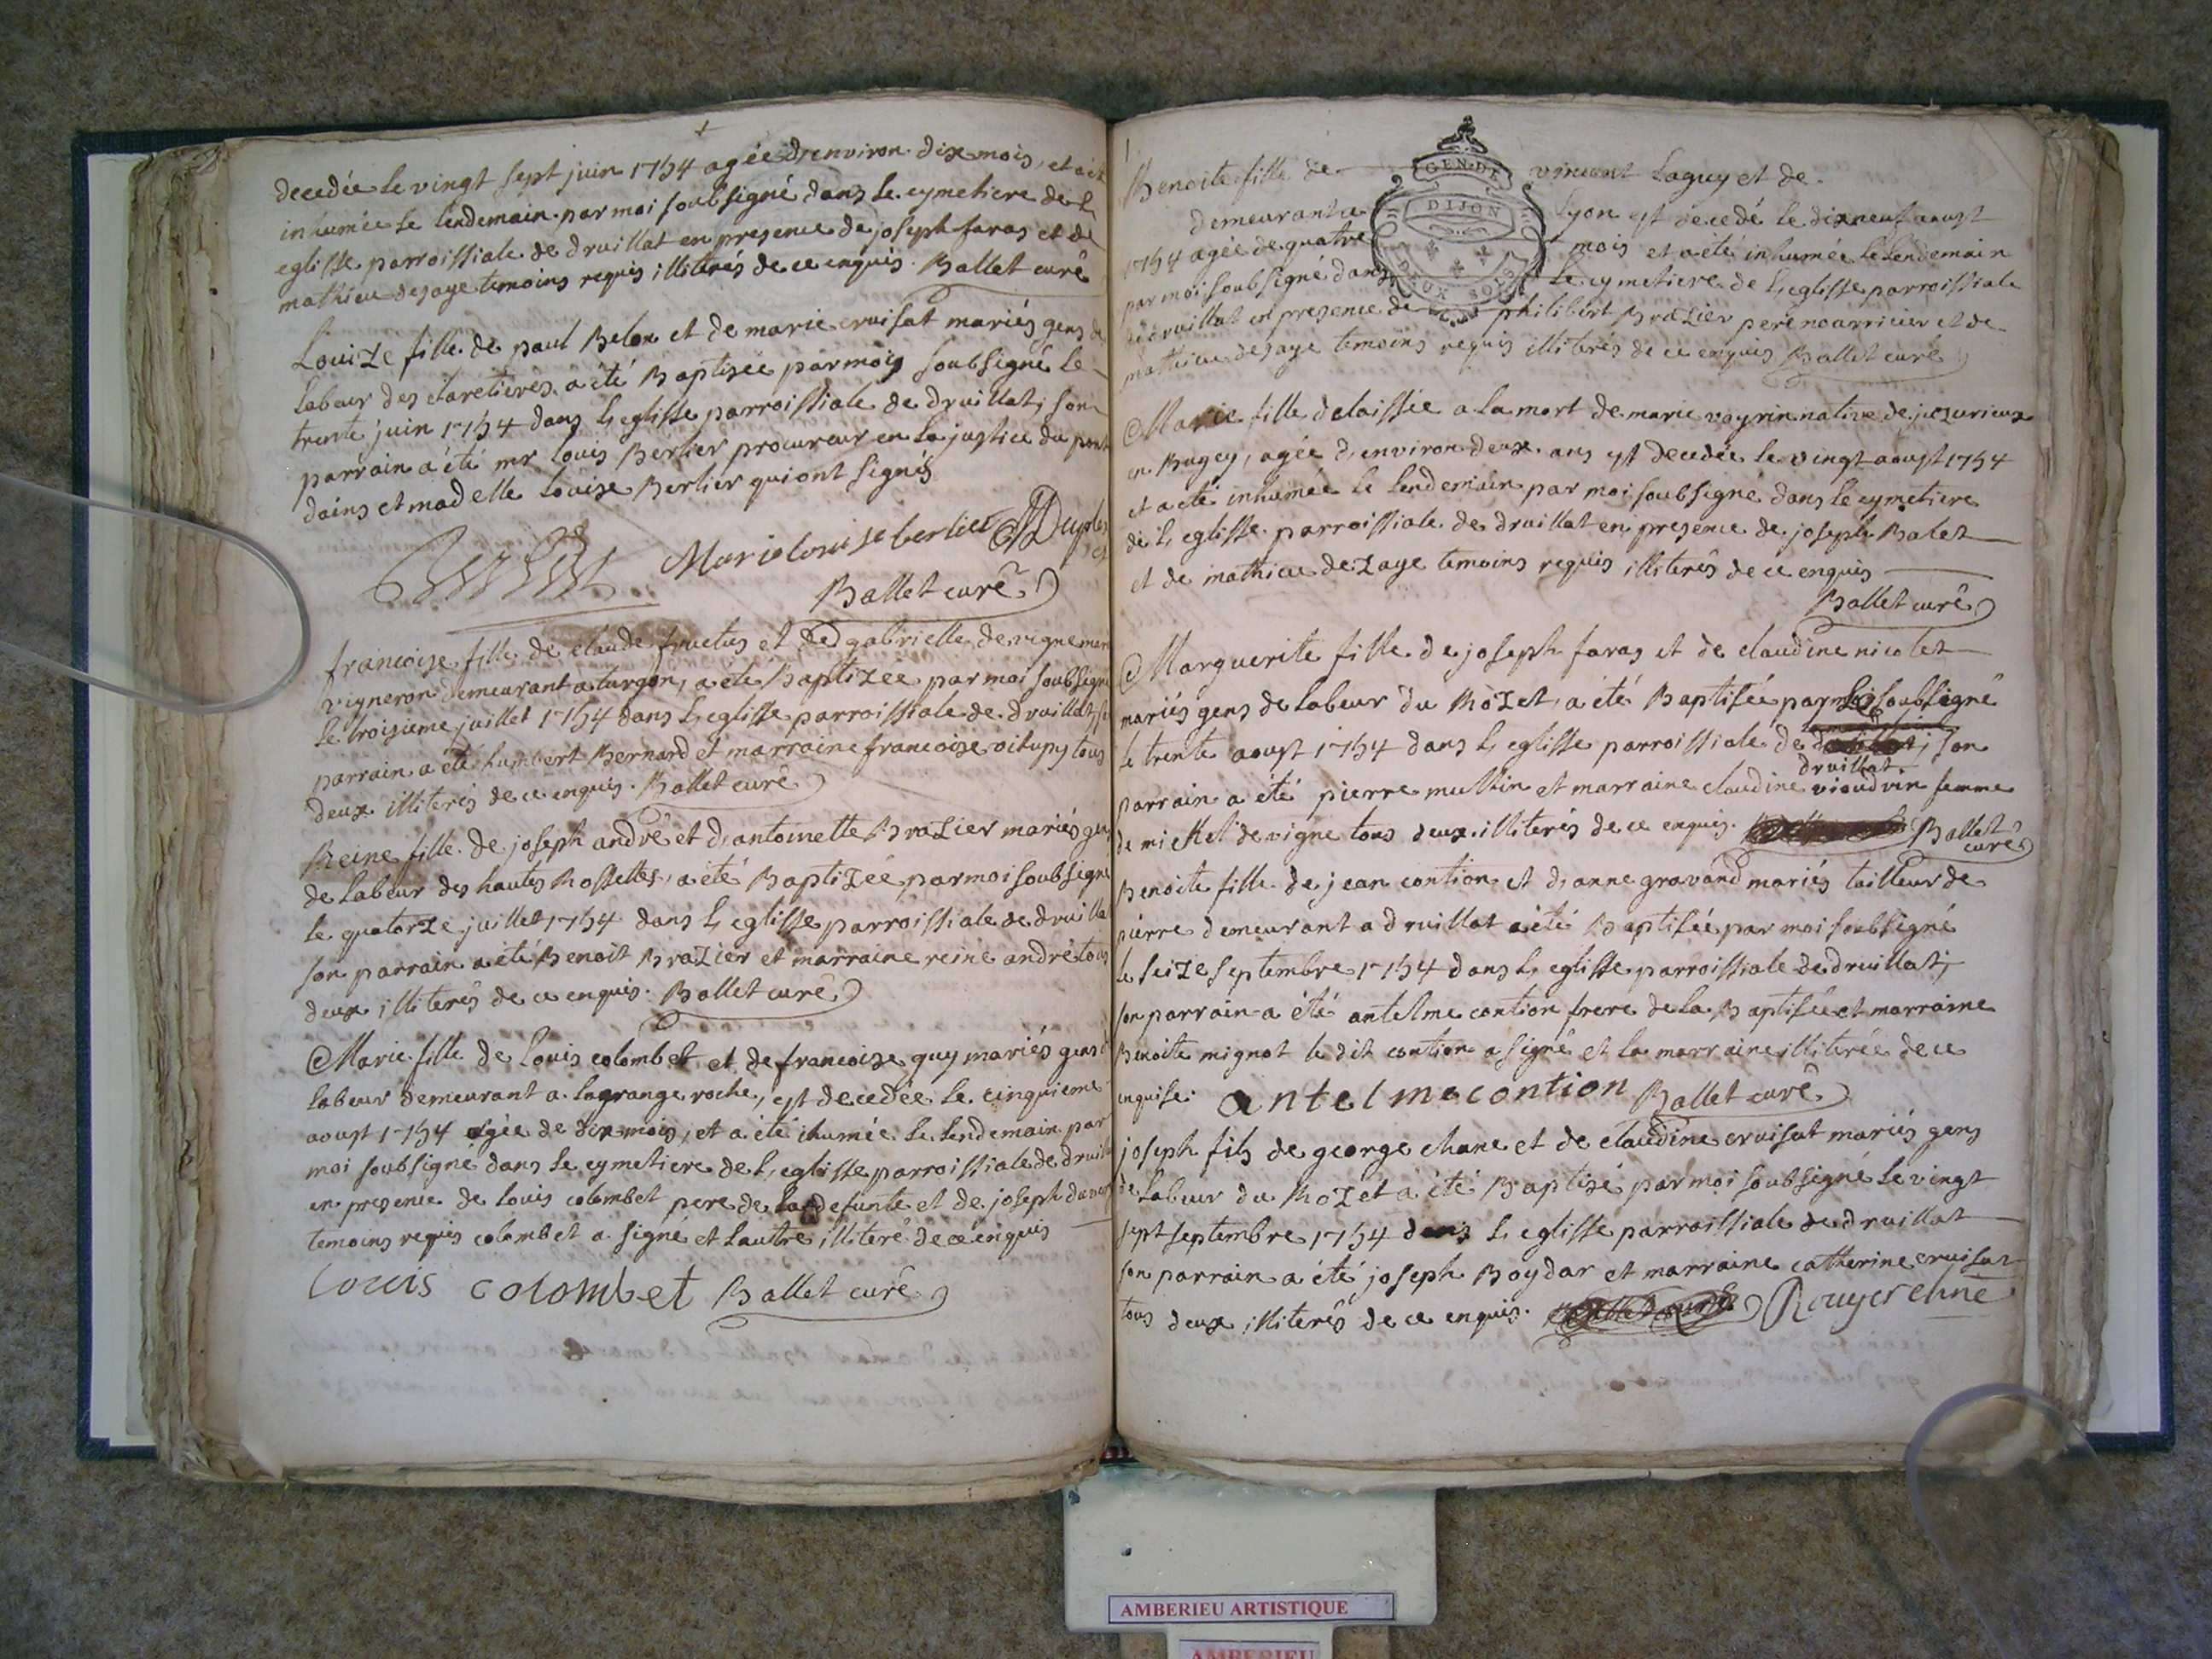 decedée le vingt sept juin 1754 agée d'environ dix mois, et a été
inhumée le lendemain par moi soubsigné dans le cymetiere de l
eglisse parroissiale de druillat en presence de joseph faras et de
mathieu dezaye temoins requis illiterés de ce enquis. Ballet curé
Louize fille de paul Belon et de marie cruisat mariés gens de
labeur des claretieres, a été Baptizée par moy soubsigné le
trente juin 1754 dans l'eglisse parroissiale de druillat, son
parrain a été mr louis Berlier procureur en la justice du pont
dains et madelle Louise Berlier qui ont signés
Marie louise berlier
Ballet curé
francoize fille de claude fructus et de gabrielle devigne
vigneron demeurant a turgon, a été Baptizée par moi soubsigné
le troisieme juillet 1754 dans l'eglisse parroissiale de druillat,
parrain a été humbert Bernard et marraine francoize tous
deux illiterés de ce enquis. Ballet curé
Reine fille de joseph andré et d'antoinette Brazier mariés gens
de labeur des hautes Rossettes, a été Baptizée par moi soubsigné
le quatorze juillet 1754 dans l'eglisse parroissiale de druillat
son parrain a été Benoit Brazier et marraine reine andré tous
deux illiterés de ce enquis. Ballet curé
Marie fille de louis colombet et de francoize guy mariés gens de
labeur demeurant a la grange roche, est decedée le cinquieme
aoust 1754 agée de dix mois, et a été ihumée le lendemain par
moi soubsigné dans le cymetiere de l'eglisse parroissiale de druillat
en presence de louis colombet pere de la defunte et de joseph
temoins requis colombet a signé et l'autre illiteré de ce enquis
louis colombet Ballet curé
Benoite fille de vincent laguy et de
demeurant a lyon est decedé le dix neuf aoust
1754 agée de quatre mois et a été inhumée le lendemain
par moi soubsigné dans le cymetiere de l'eglisse parroissiale
de druillat en presence de philibert Brazier pere nourricier et de
mathieu dezaye temoins requis illiterés de ce enquis Ballet curé
GEN. DE
DIJON
DEUX SOLS
Marie fille delaissée a la mort de marie voyrin native de juzurieux
en Bugey, agée d'environ deux ans est decedée le vingt aoust 1754
et a été inhumée le lendemain par moi soubsigné dans le cymetiere
de l'eglisse parroissiale de druillat en presence de joseph Balet
et de mathieu dezaye temoins requis illiterés de ce enquis
Ballet curé
Marguerite fille de joseph faras et de claudine nicolet
mariés gens de labeur du Rozet, a été Baptisée par moi soubsigné
le trente aoust 1754 dans l'eglisse parroissiale de druillat, son
parrain a été pierre multin et marraine claudine vioudvin femme
de michel devigne tous deux illiterés de ce enquis. Ballet curé
Benoite fille de jean contion et d'anne gravand mariés tailleur de
pierre demeurant a druillat a été Baptisée par moi soubsigné
le seize septembre 1754 dans l'eglisse parroissiale de druillat,
son parrain a été antelme contion frere de la Baptisée et marraine
Benoite mignot le dit contion a signé et la marraine illiterée de ce
enquise. antelme contion Ballet curé
joseph fils de george chane et de claudine cruisat mariés gens
de labeur du Rozet a été Baptizé par moi soubsigné le vingt
sept septembre 1754 dans l'eglisse parroissiale de druillat
son parrain a été joseph Boydar et marraine catherine cruisat
tous deux illiterés de ce enquis.
AMBERIEU ARTISTIQUE
AMBERIEU